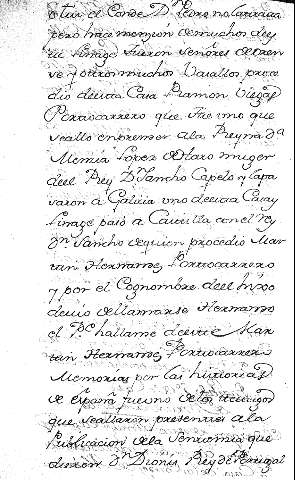 el Conde Dn Pedro no
pero hace mencion de muchos de es
te linage fueron Señores de
ve y otros muchos Vasallos proce
dio de esta Casa Ramon Viegas
Portocarrero que fue uno que
se allo en prender a la Reyna Da
Mencia Lopez de Haro muger
del Rey Dn Sancho Capelo y la pa
saron a Galicia uno de esta Casa y
linage pasó a Castilla con el rey
Dn Sancho de quien procedio Mar
tin Hernandez Portocarrero
y por el Cognombre de el hixo
devio de llamarse Hernando
el Pe hallame de este Mar
tin Hernandez Portocarrero
Memorias por las historias
de España fue uno de los testigos
que se allaron presentes a la
Publicacion de la Sentencia que
dieron Dn Dionis Rey de Portugal